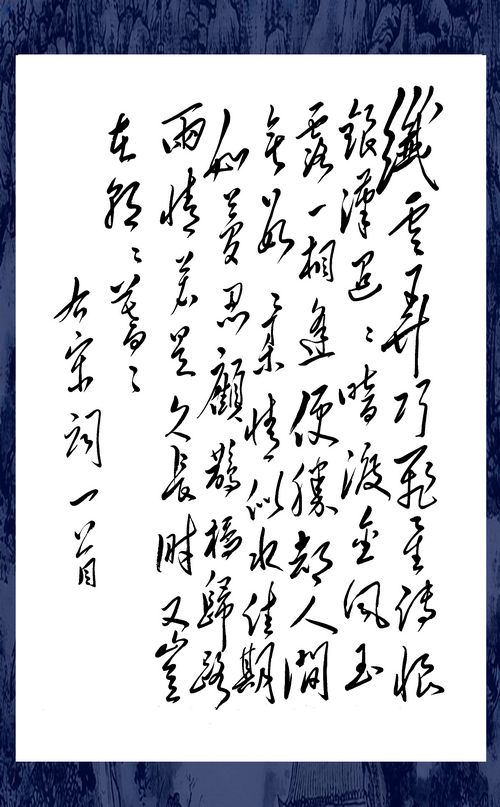 纖雲弄巧飛星傳恨
銀漢迢々暗渡金風玉
露一相逢便勝却人間
無數柔情似水佳期
如夢忍顧鵲橋歸路
兩情若是久長時又豈
在朝々暮々
右宋詞一首